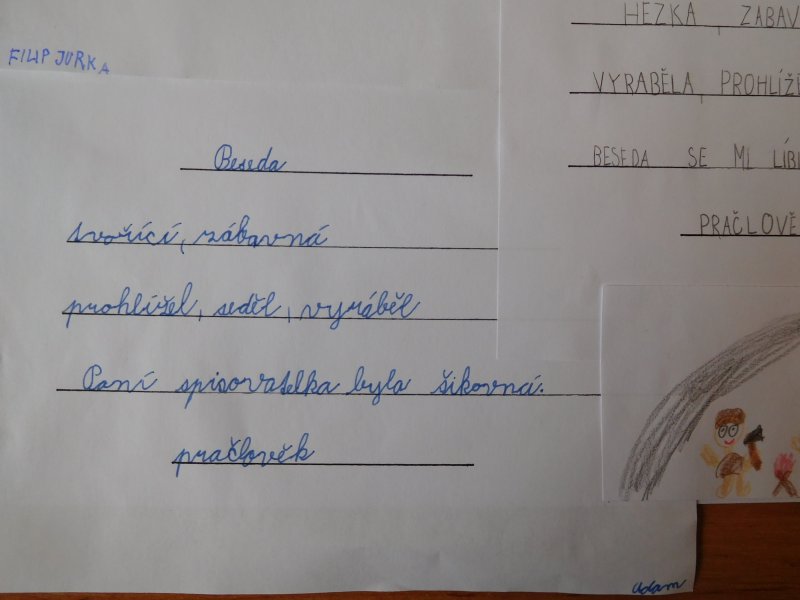 FILIP JURKA
Beseda
tvořící, zábavná
prohlížel, seděl, vyráběl
Paní spisovatelka byla šikovná.
pračlověk
Adam
HEZKÁ, ZÁBAV
VYRABĚLA, PROHLÍŽE
BESEDA SE MI LÍBI
PRAČLOVĚ